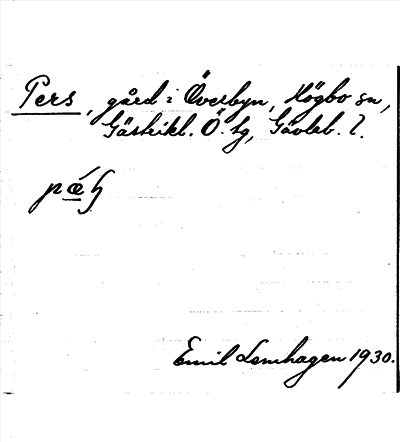 Pers, gård i Överbyn, Högbo sn,
Gästrikl. Ö. tg, Gävleb. l.
Emil Lenhagen 1930.